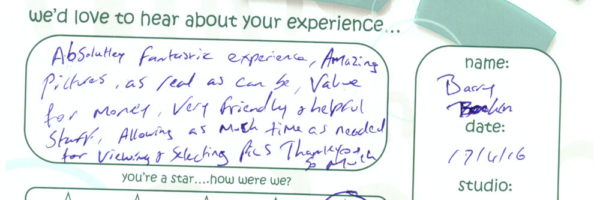 we'd love to hear about your experience...
Absolutley fantastic experience, Amazing
Pictures, as real as can be, Value
for money, Very friendly & helpful
Staff, Allowing as much time as needed
for viewing & selecting pics Thankyou
so much
you're a star....how were we?
name:
Barry
date:
17/4/16
studio: